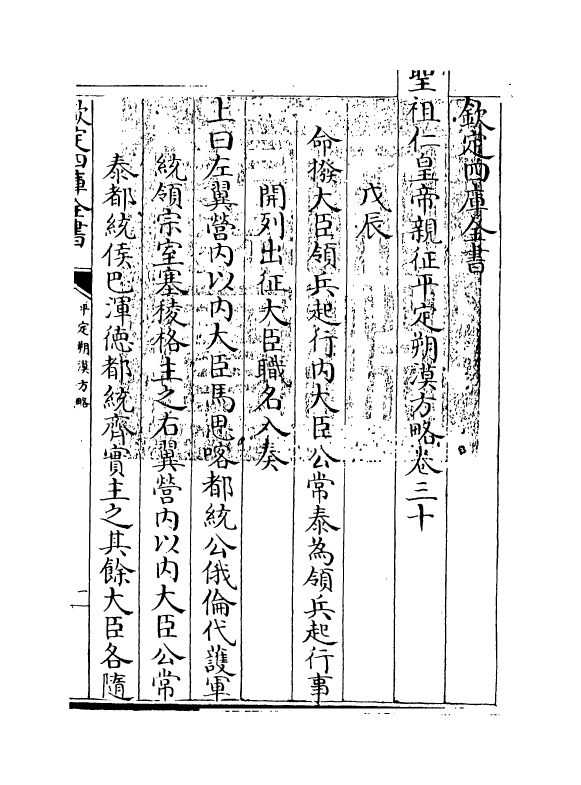 欽定四庫全書
聖祖仁皇帝親征平定朔漠方略卷三十
戊辰
命撥大臣領兵起行内大臣公常泰為領兵起行事
開列出征大臣職名入奏
上曰左翼營内以内大臣馬思喀都統公俄倫代護軍
統領宗室塞稜格主之右翼營内以内大臣公常
泰都統侯巴渾德都統齊實主之其餘大臣各隨
欽定四庫全書
平定朔漠方略